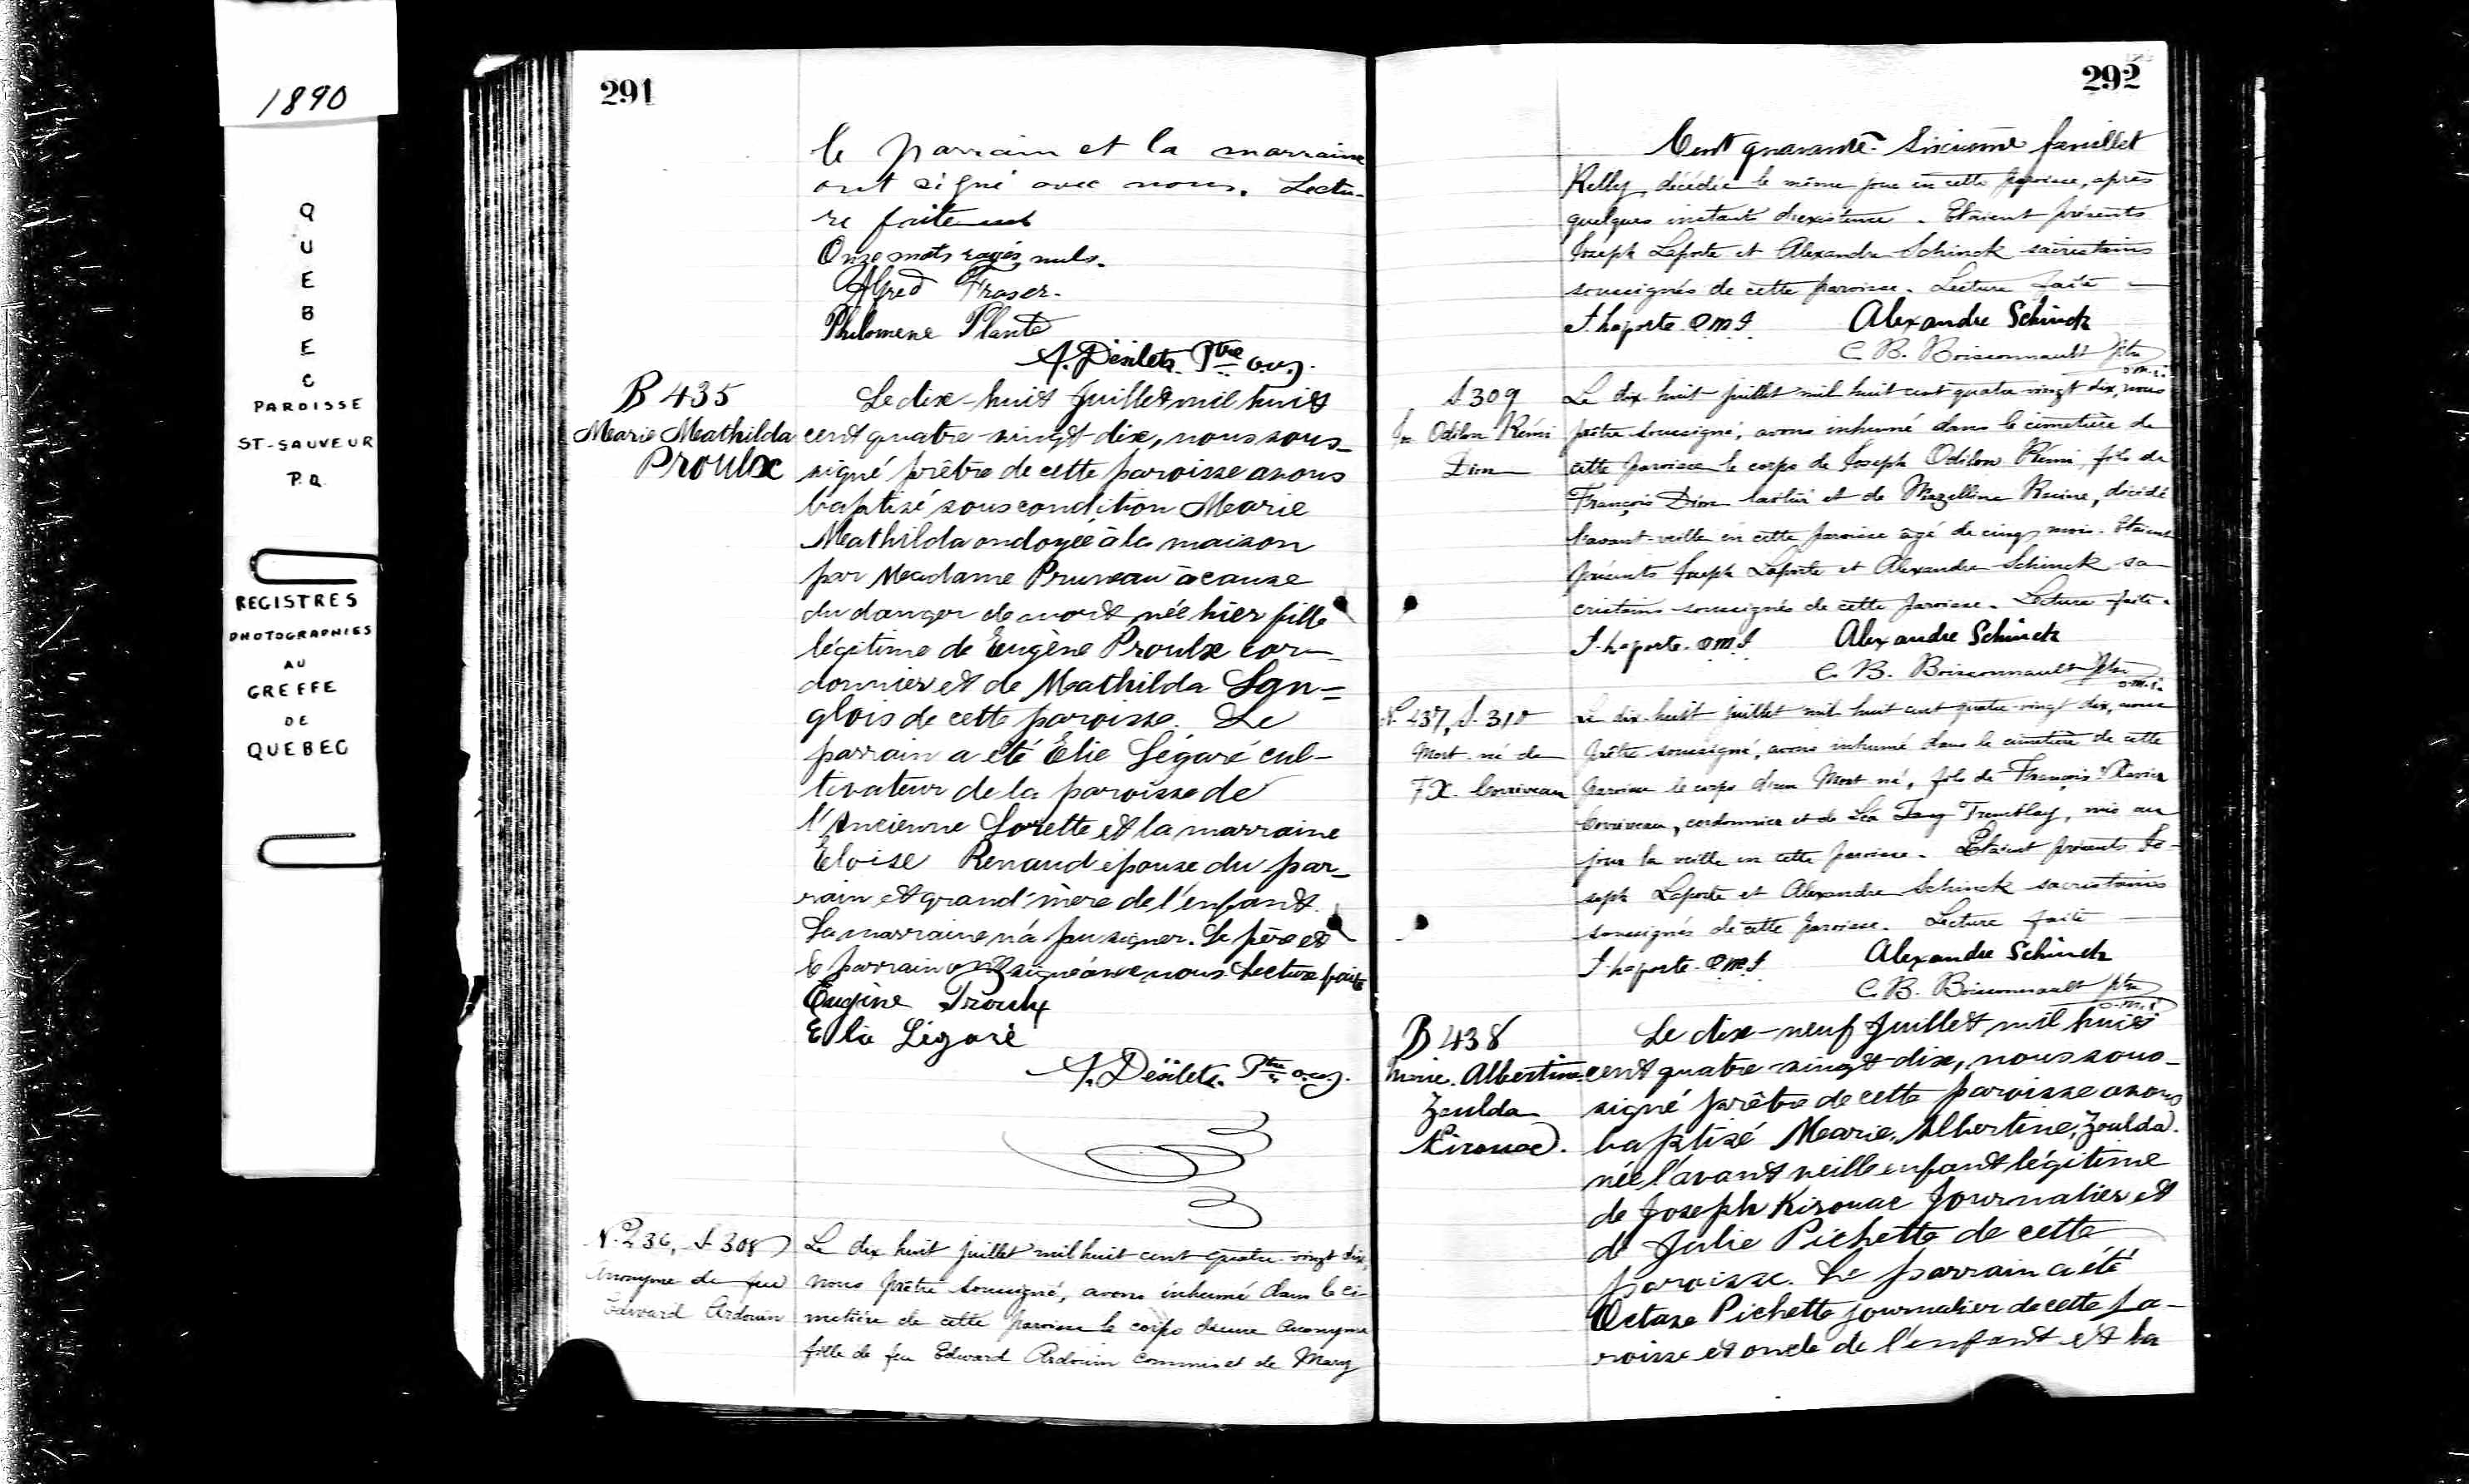 1890
QUEBEC
PAROISSE
ST-SAUVEUR
P.Q.
REGISTRES
PHOTOGRAPHIES
AU
GREFFE
DE
QUEBEC
291
le parrain et la marraine
ont signé avec nous. Lectu-
re faite
Onze mots rayés nuls.
Alfred Fraser.
Philomene Plante
A. Désilets Ptre
B 435
Marie Mathilda
Proulx
Le dix-huit Juillet mil huit
cent quatre-vingt-dix, nous sous-
signé prêtre de cette paroisse avons
baptisé sous condition Marie
Mathilda ondoyée à la maison
par Madame Pruneau à cause
du danger de mort née hier fille
légitime de Eugène Proulx cor-
donnier et de Mathilda Lan=
glois de cette paroisse. Le
parrain a été Elie Légaré cul-
tivateur de la paroisse de
l'Ancienne Lorette et la marraine
Eloise Renaud épouse du par-
rain et grand'mère de l'enfant.
La marraine n'a pu signer. Le père et
le parrain ont signé avec nous. Lecture faite
Eugène Proulx
Elie Légaré
A. Désilets. Ptre
N. 236, S. 308
Anonyme de feu
Edward Ardouin
Le dix huit juillet mil huit cent quatre-vingt dix,
nous prêtre soussigné, avons inhumé dans le ci-
metière de cette paroisse le corps d'une anonyme
fille de feu Edward Ardouin commis et de Mary
292
Cent quarante-sixième feuillet
Kelly, décédée le même jour en cette paroisse, après
quelques instants d'existence. Etaient présents
Joseph Laporte et Alexandre Schinck sacristains
soussignés de cette paroisse. Lecture faite
J. Laporte. O.M.I. Alexandre Schinck
C. B. Boissonnault ptre
o.m.i.
S 309
Jos. Odilon Rémi
Dion
Le dix-huit juillet mil huit cent quatre vingt dix, nous
prêtre soussigné, avons inhumé dans le cimetière de
cette paroisse le corps de Joseph Odilon Rémi, fils de
François Dion et de Mazelline Racine, décédé
l'avant-veille en cette paroisse âgé de cinq mois. Etaient
présents Joseph Laporte et Alexandre Schinck sa-
cristains soussignés de cette paroisse. Lecture faite.
J. Laporte. O.M.I. Alexandre Schinck
C. B. Boissonnault Ptre
o.m.i.
N. 437, S. 310
Mort-né de
F.X. Corriveau
Le dix-huit juillet mil huit cent quatre-vingt dix, nous
prêtre soussigné, avons inhumé dans le cimetière de cette
paroisse le corps d'un Mort-né, fils de François Xavier
Corriveau, cordonnier et de Léa Tremblay, mis au
jour la veille en cette paroisse. Etaient présents Jo-
seph Laporte et Alexandre Schinck sacristains
soussignés de cette paroisse. Lecture faite
J. Laporte. O.M.I. Alexandre Schinck
C. B. Boissonnault ptre
o.m.i.
B 438
Marie. Albertine
Zoulda
Kirouac.
Le dix-neuf Juillet mil huit
cent quatre-vingt-dix, nous sous-
signé prêtre de cette paroisse avons
baptisé Marie, Albertine, Zoulda.
née l'avant veille enfant légitime
de Joseph Kirouac Journalier et
de Julie Pichette de cette
paroisse. Le parrain a été
Octave Pichette journalier de cette pa-
roisse et oncle de l'enfant et la